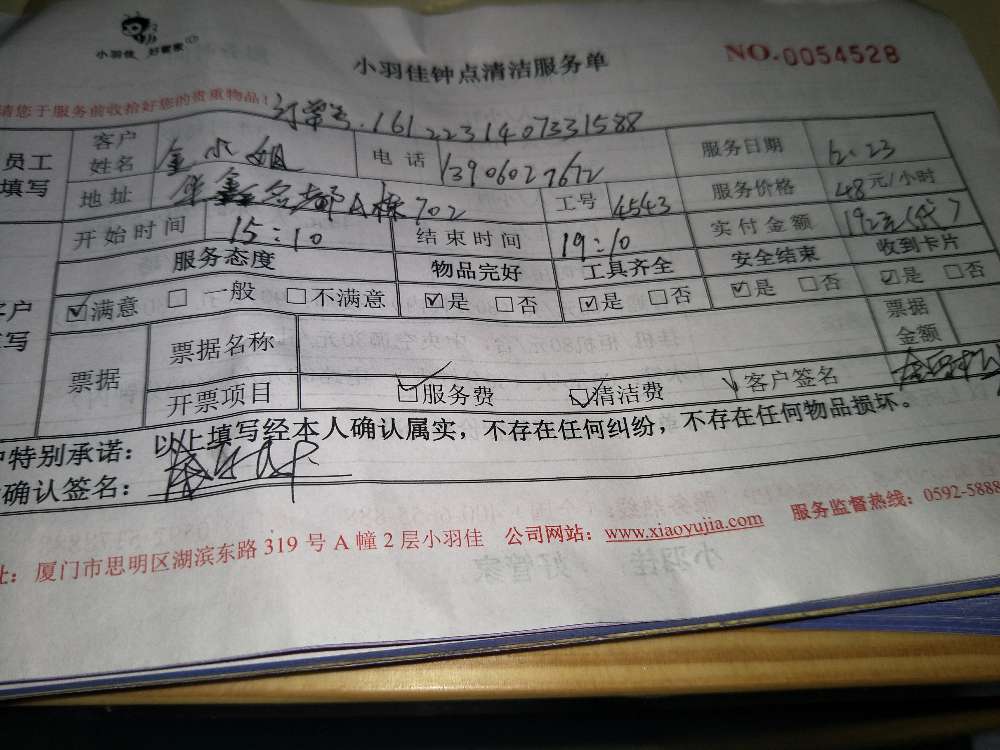 小羽佳 好管家
小羽佳钟点清洁服务单
NO.0054528
请您于服务前收拾好您的贵重物品!
订单号.1612231407331588
员工
填写
客户
姓名 金水姐 电话 13906027672 服务日期 12.23
地址 鑫名都A栋702 工号 4543 服务价格 48元/小时
开始时间 15:10 结束时间 19:10 实付金额 192元
服务态度 物品完好 工具齐全 安全结束 收到卡片
☑满意 □一般 □不满意 ☑是 □否 ☑是 □否 ☑是 □否 ☑是 □否
票据 票据名称 票据
金额
开票项目 ☑服务费 ☑清洁费 客户签名
户特别承诺:以上填写经本人确认属实,不存在任何纠纷,不存在任何物品损坏。
确认签名:
址:厦门市思明区湖滨东路319号A幢2层小羽佳 公司网站:www.xiaoyujia.com 服务监督热线:0592-5888